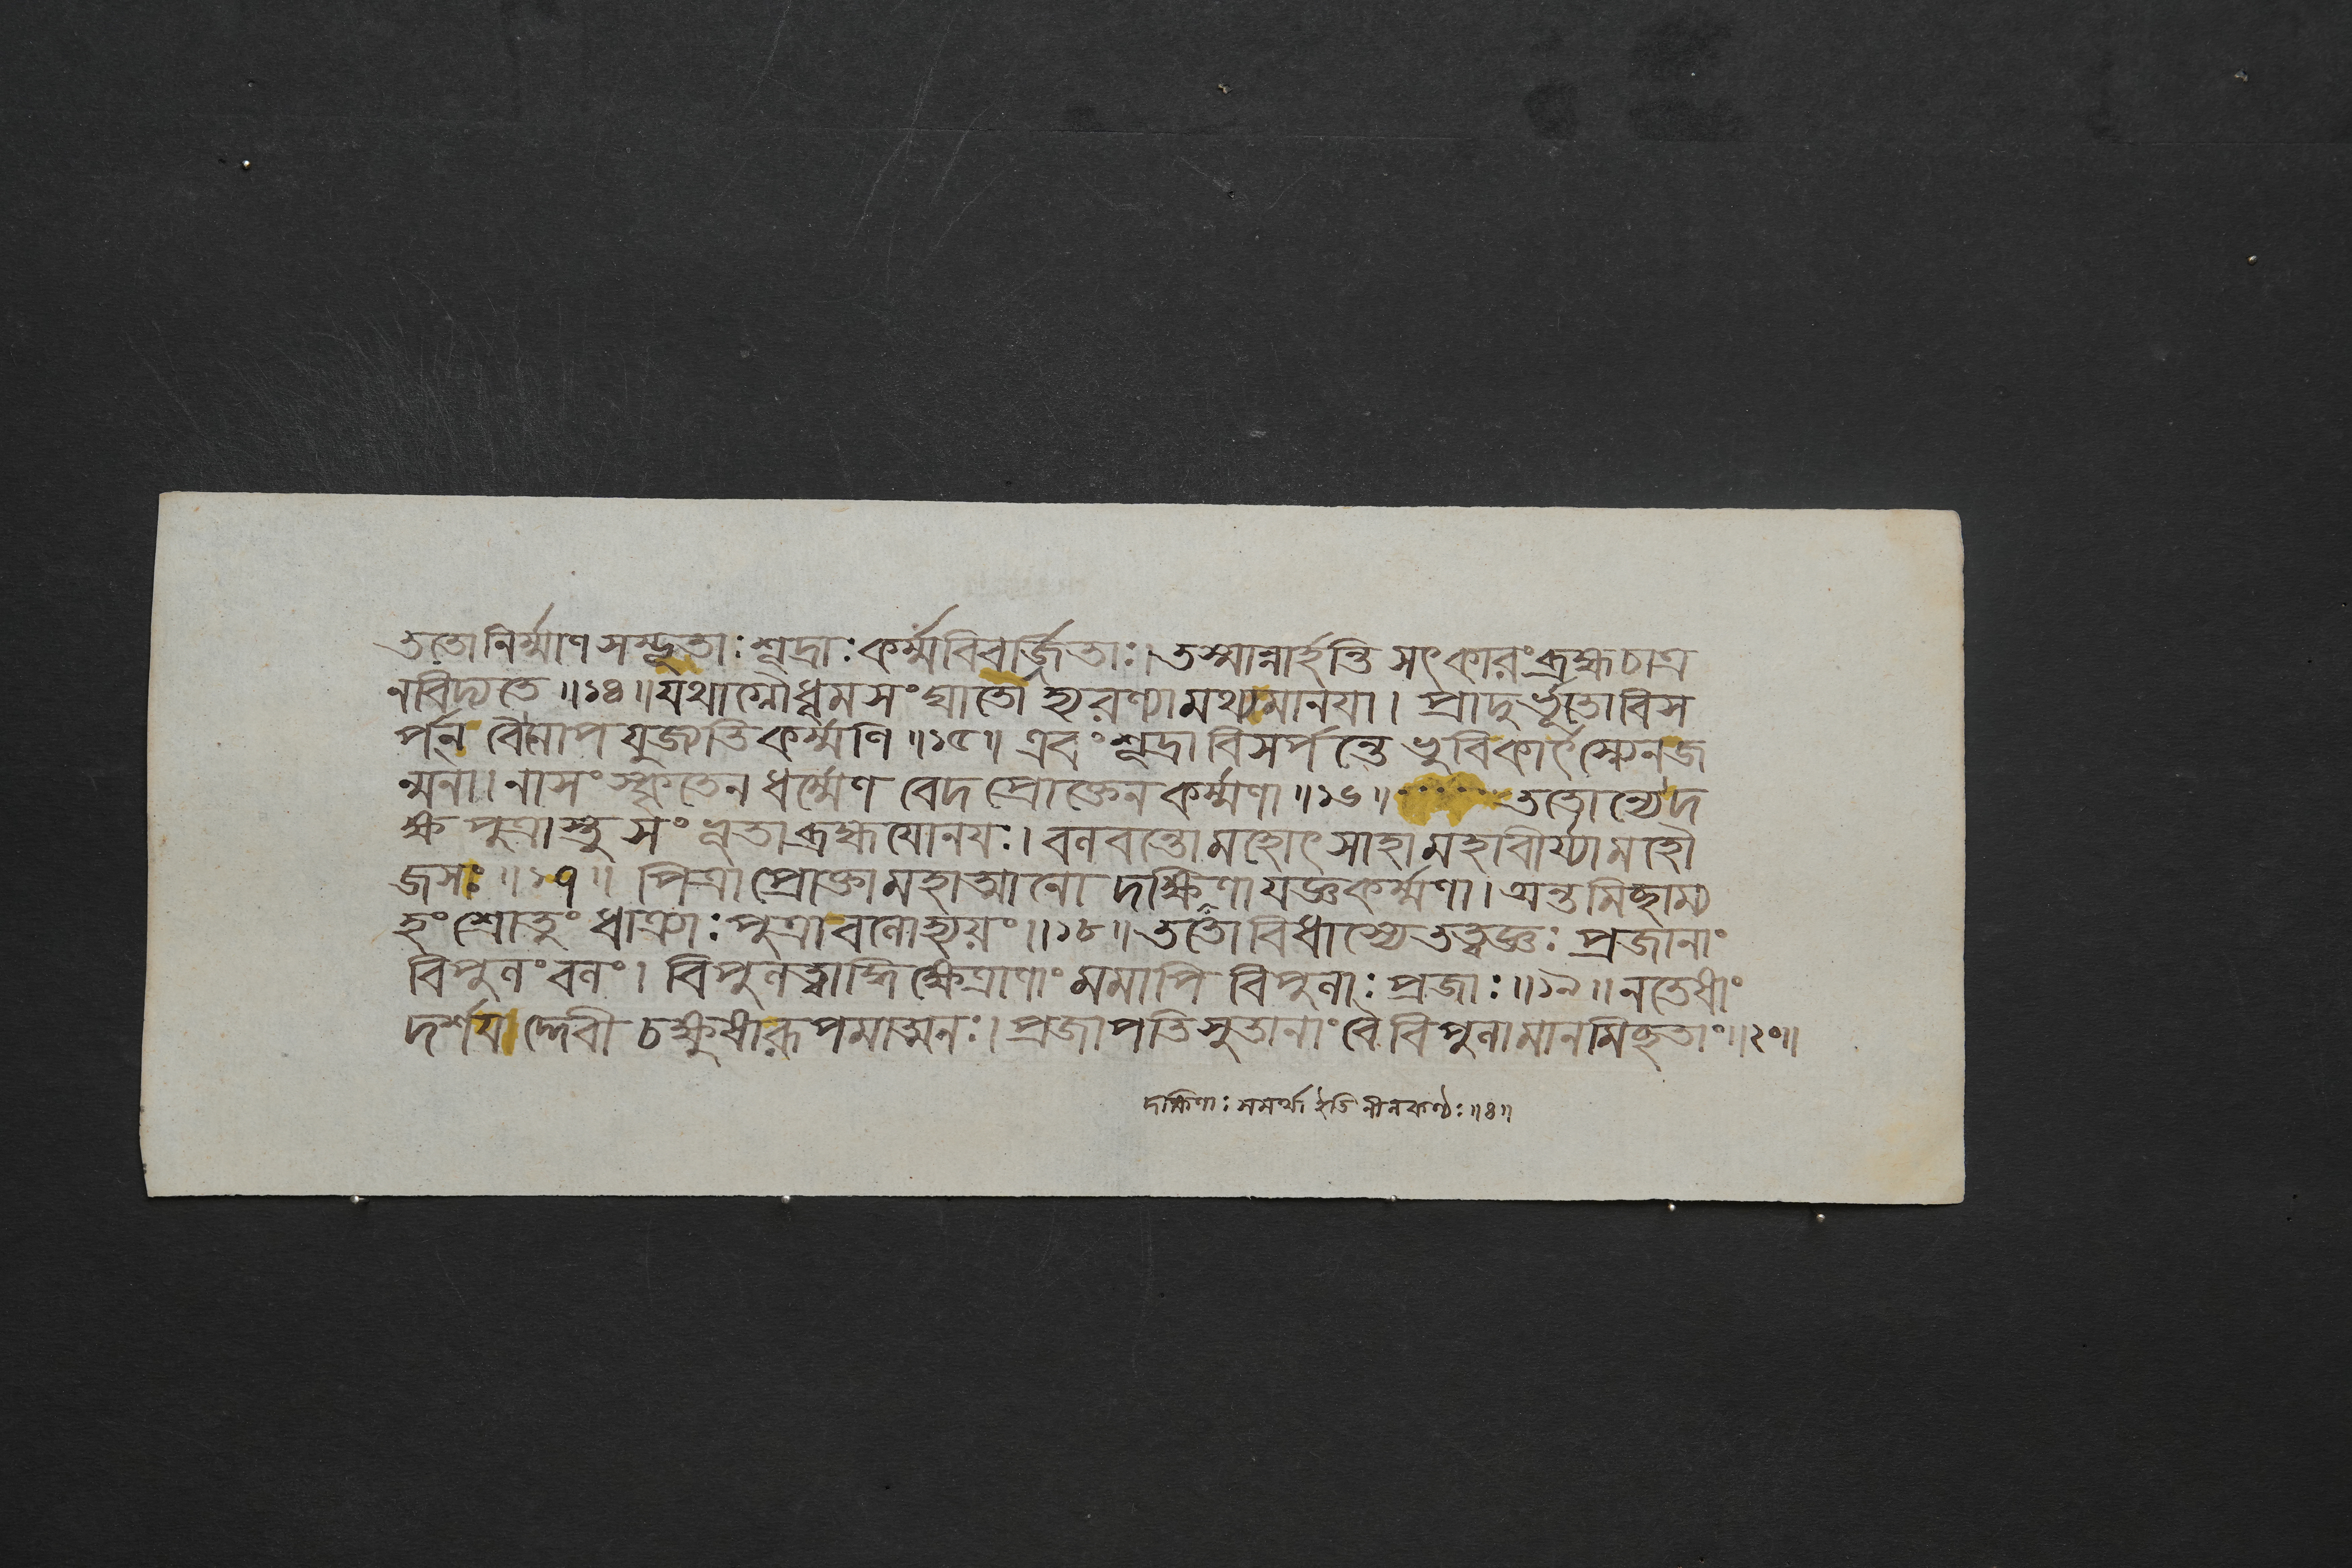 ততো নির্ম্মাণসম্ভূতাঃ শূদ্রাঃ কর্ম্মবিবর্জিতাঃ। তস্মান্নার্হন্তি সৎকারং ব্রহ্ম চাত্র
ন বিদ্যতে॥১৪॥ যথাগ্নৌ ধূমসংঘাতো হ্যরণ্যামথ্যমানয়া। প্রাদুর্ভূতো বিস
র্পন বৈ নোপযুজ্যতি কর্ম্মণি॥১৫॥ এবং শূদ্রা বিসর্পন্তো ভুবি কার্ৎস্ন্যেন জ
ন্মনা। নাসংস্কৃতেন ধর্ম্মেণ বেদপ্রোক্তেন কর্ম্মণা॥১৬॥ ততোন্যে দ
ক্ষপুত্রাস্তু সংভূতা ব্রহ্মযোনয়ঃ। বলবন্তো মহোৎসাহা মহাবীর্য্যা মহৌ
জসঃ॥১৭॥ পিত্রা প্রোক্তা মহাত্মানো দক্ষিণা যজ্ঞকর্ম্মণা। অন্তমিচ্ছাম্য
হং শ্রোতুং ধাত্র্যাঃ পুত্রা বলো হ্যয়ং॥১৮॥ ততো বিধাস্যে তত্ত্বজ্ঞঃ প্রজানাং
বিপুলং বলং। বিপুলত্বাদ্ধি ক্ষেত্রাণাং মমাপি বিপুলাঃ প্রজাঃ॥১৯॥ ন তেষাং
দর্শয়দ্দেবী চক্ষুষা রূপমাত্মনঃ। প্রজাপতিসুতানাং বৈ বিপুলামানমিচ্ছতাং॥২০॥
দক্ষিণাঃ সমর্থা ইতি নীলকণ্ঠঃ॥৪॥